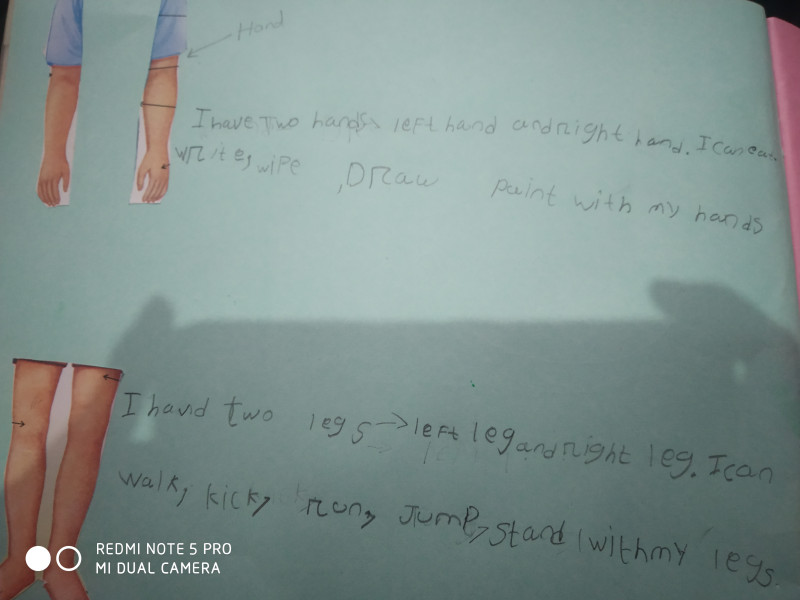 Hand
I have Two hands left hand and right hand. I can eat
write, wipe , Draw paint with my hands
I hand two legs → left leg and right leg. I can
walk, kick, run, Jump, stand with my legs.
REDMI NOTE 5 PRO
MI DUAL CAMERA